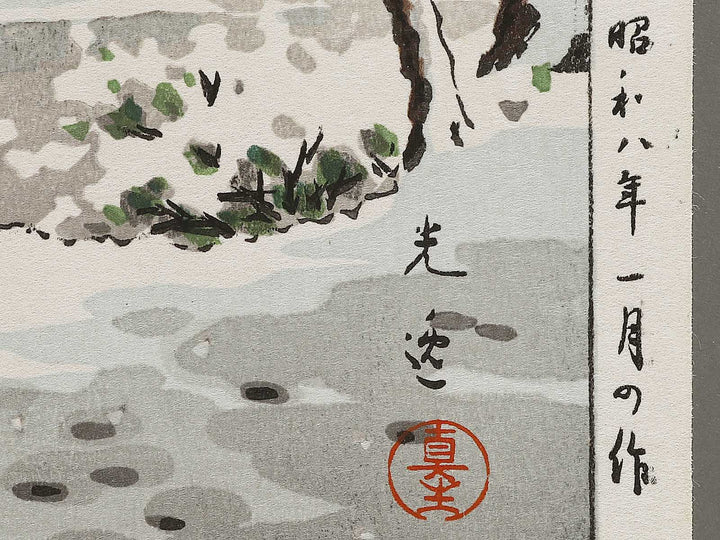 昭和八年一月の作
光逸
真生